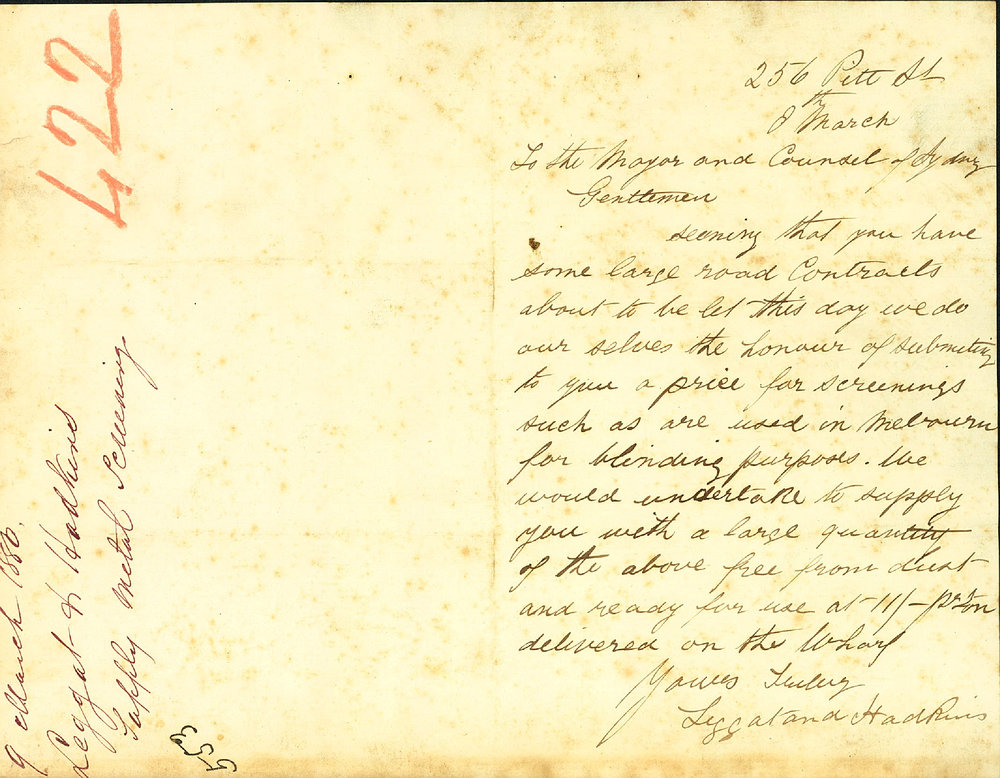 422
9 March 1880.
Leggat & Hadkins
Supply metal Screening.
256 Pitt St
8th March
To the Mayor and Counsel of Sydney
Gentlemen
seening that you have
some large road Contracts
about to be let this day we do
our selves the honour of submiting
to you a price for screenings
such as are used in Melbourn
for blinding purposes. We
would undertake to supply
you with a large quantity
of the above free from dust
and ready for use at 11/- pr ton
delivered on the Wharf
Yours Truley
Leggat and Hadkins